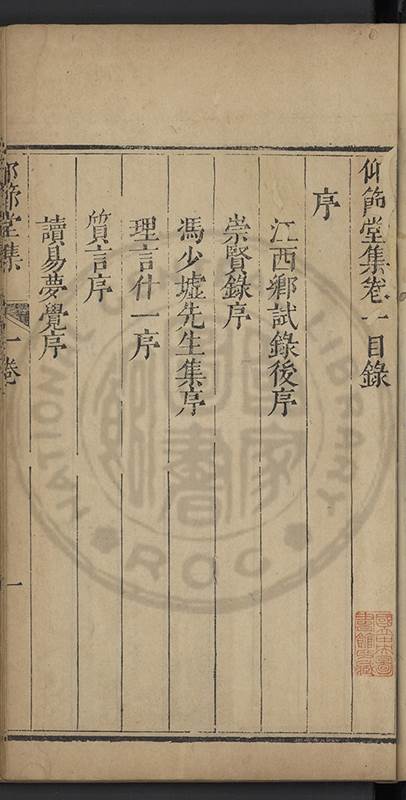 仰節堂集卷一目錄
序
江西鄉試錄後序
崇賢錄序
馮少墟先生集序
理言什一序
質言序
讀易夢覺序
仰節堂集
一卷
一
國立中央圖書館收藏
NATIONAL CENTRAL LIBRARY
ROC